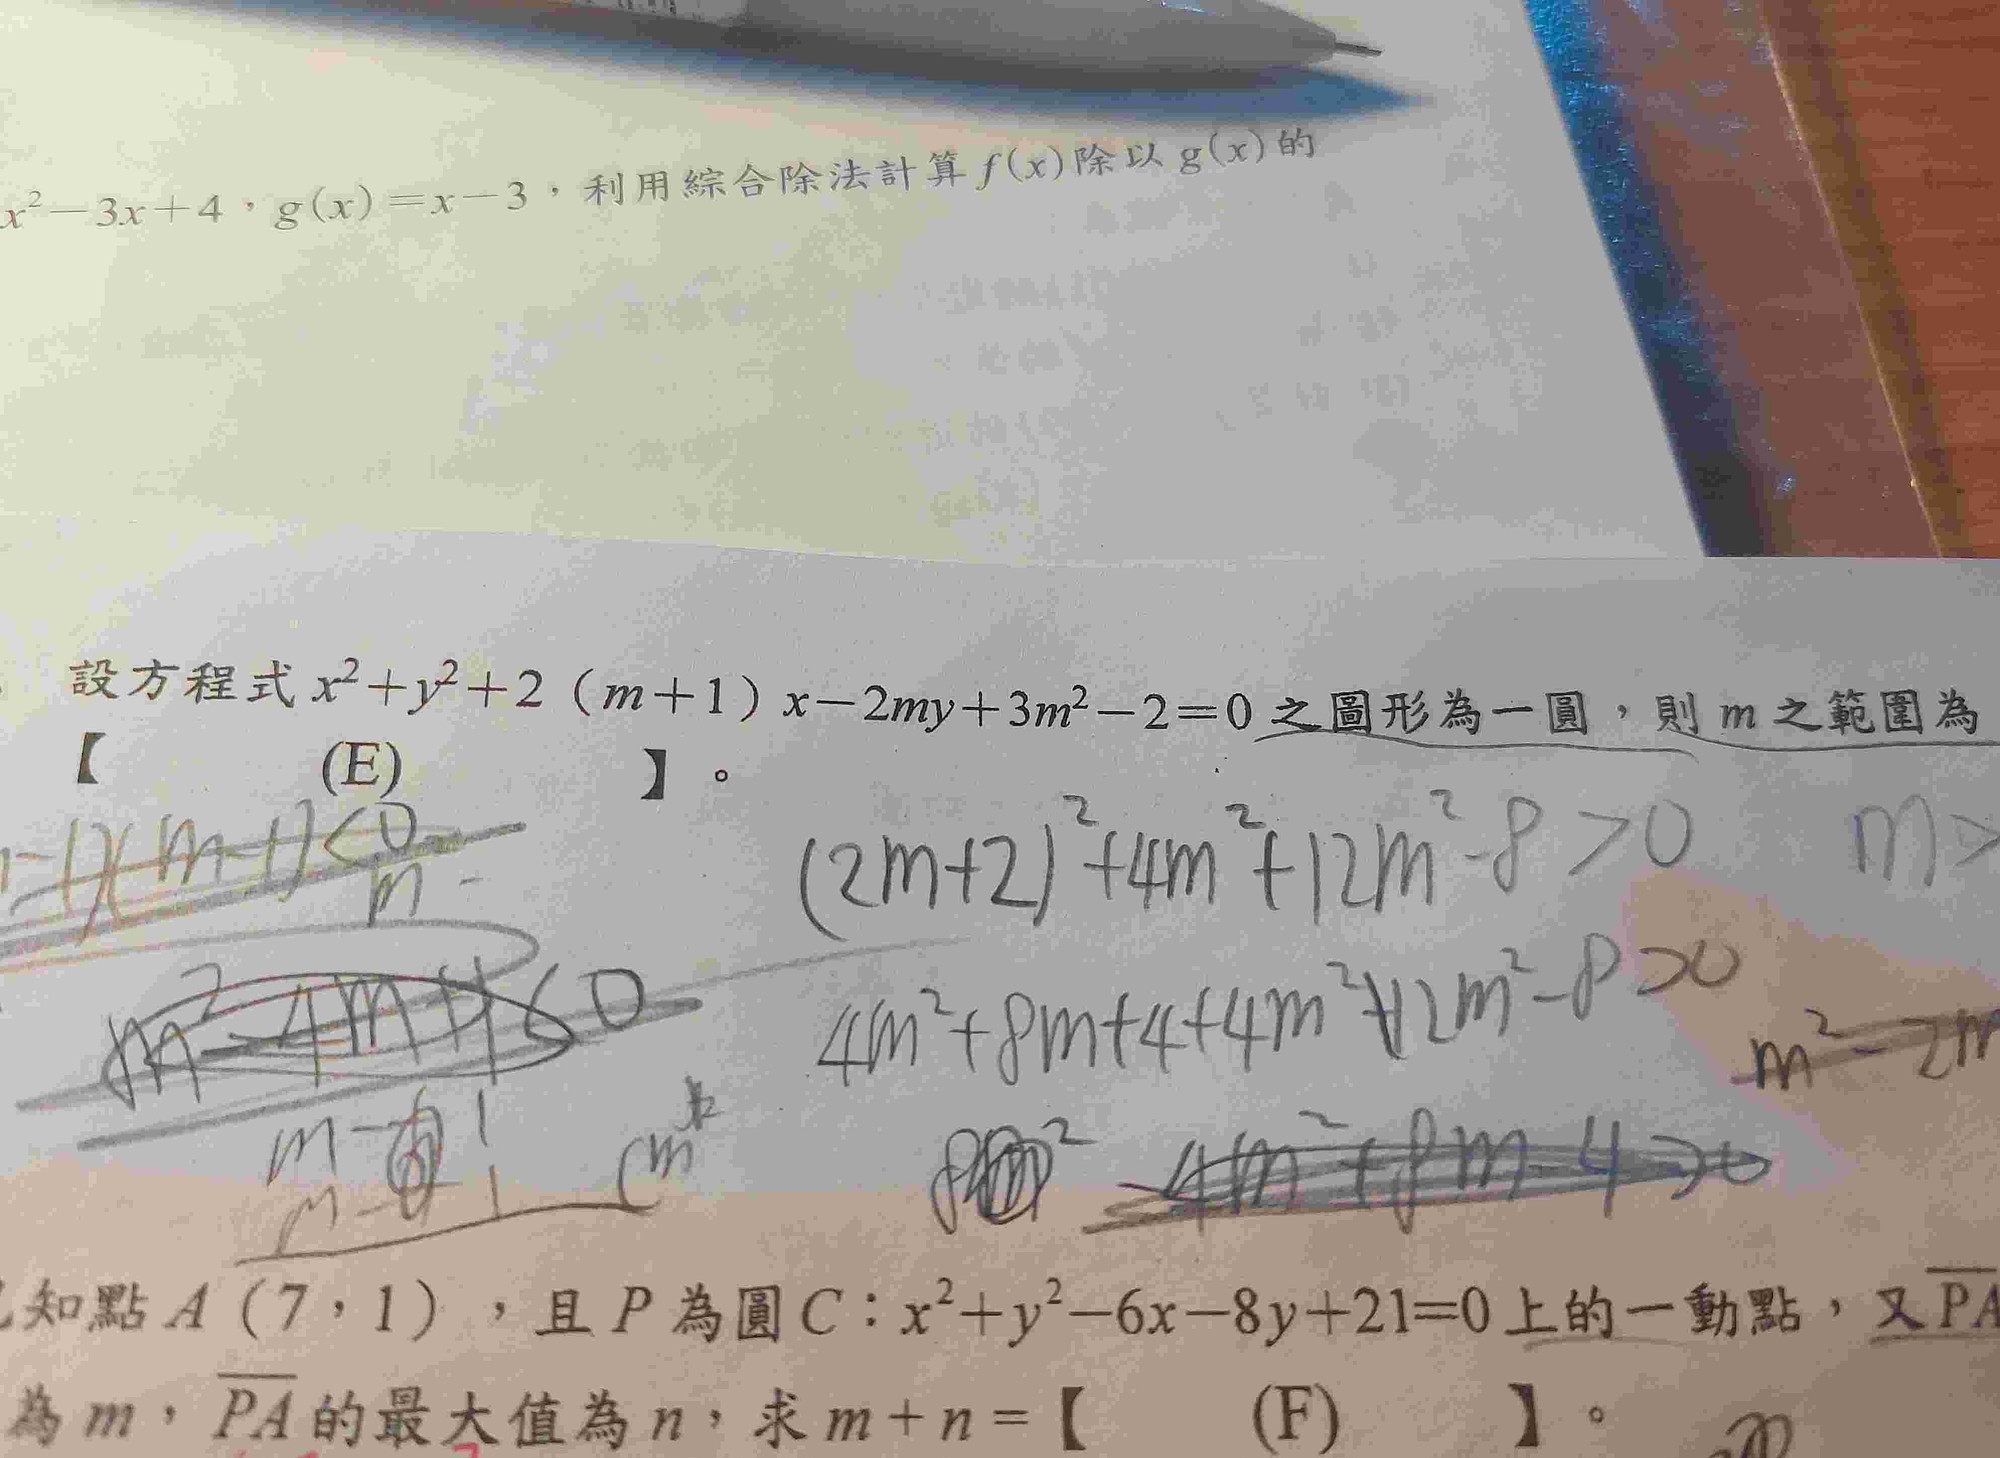 x²－3x＋4，g(x)＝x－3，利用綜合除法計算 f(x)除以 g(x)的
設方程式 x²＋y²＋2（m＋1）x－2my＋3m²－2＝0 之圖形為一圓，則 m 之範圍為
【 (E) 】。
-1)(m-1)<0
m -
(2m+2)²+4m²+12m²-8>0 m>
m²-4m+1<0
4m²+8m+4+4m²+12m²-8>0
m²-2m
m- 1
m- 1
(m²
8m² -4m²+8m-4>0
知點 A（7，1），且 P 為圓 C：x²＋y²－6x－8y＋21＝0 上的一動點，又 PA
為 m，PA 的最大值為 n，求 m＋n＝【 (F) 】。